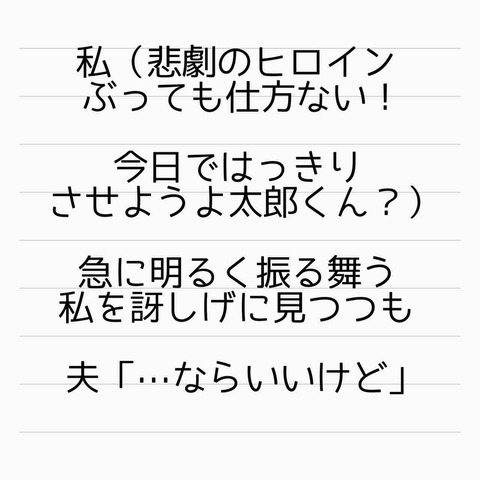 私（悲劇のヒロイン
ぶっても仕方ない！
今日ではっきり
させようよ太郎くん？）
急に明るく振る舞う
私を訝しげに見つつも
夫「…ならいいけど」